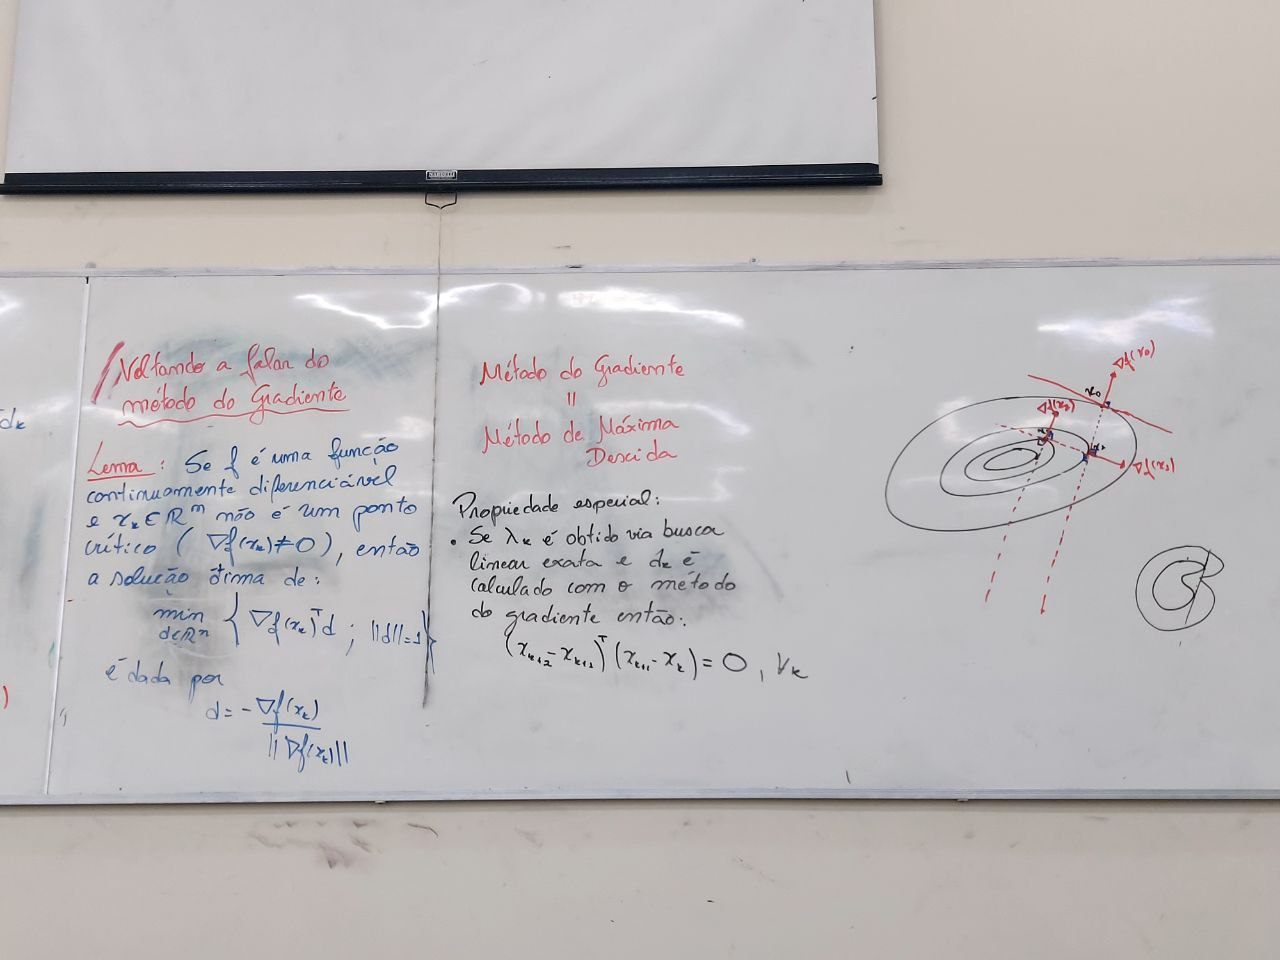 dₖ
Voltando a falar do
método do Gradiente
Lema: Se f é uma função
continuamente diferenciável
e xₖ ∈ ℝⁿ não é um ponto
crítico (∇f(xₖ) ≠ 0), então
a solução ótima de:
min { ∇f(xₖ)ᵀd ; ||d||=1 }
d∈ℝⁿ
é dada por
d = - ∇f(xₖ)
||∇f(xₖ)||
Método do Gradiente
=
Método de Máxima
Descida
Propriedade especial:
• Se λₖ é obtido via busca
linear exata e dₖ é
calculado com o método
do gradiente então:
(xₖ₊₂ - xₖ₊₁)ᵀ(xₖ₊₁ - xₖ) = 0, ∀ₖ
∇f(x₀)
x₀
∇f(x₂)
x₁
∇f(x₁)